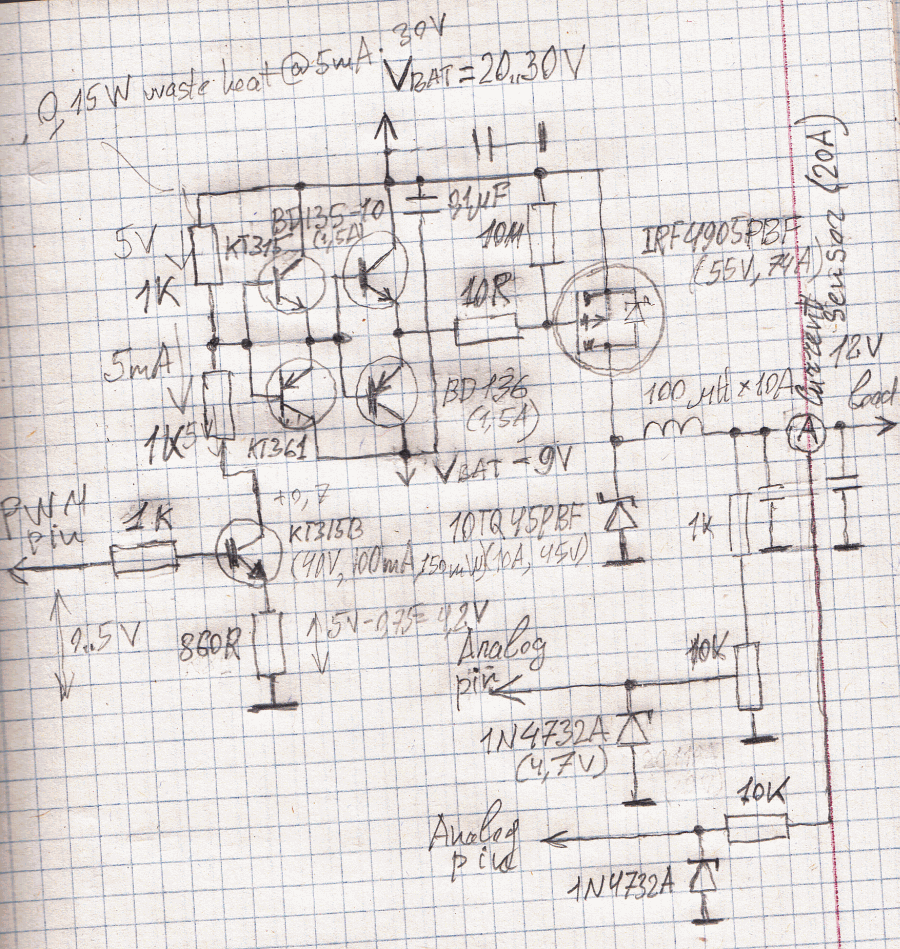 30V
0,15W waste heat @ 5mA.
VBAT = 20..30V
BD135-10
(1,5A)
KT315
5V
1K
10M
10R
IRF4905PBF
(55V, 74A)
Current
Sensor (20A)
5mA
12V
load
100µH x 10A
A
BD136
(1,5A)
1K
5V
KT361
VBAT - 9V
PWM
pin
1K
+0,7
KT315B
(40V, 100mA, 150mW)
10TQ45PBF
(10A, 45V)
1k
0..5V
860R
5V-0,75=4,2V
Analog
pin
10K
1N4732A
(4,7V)
10K
Analog
pin
1N4732A